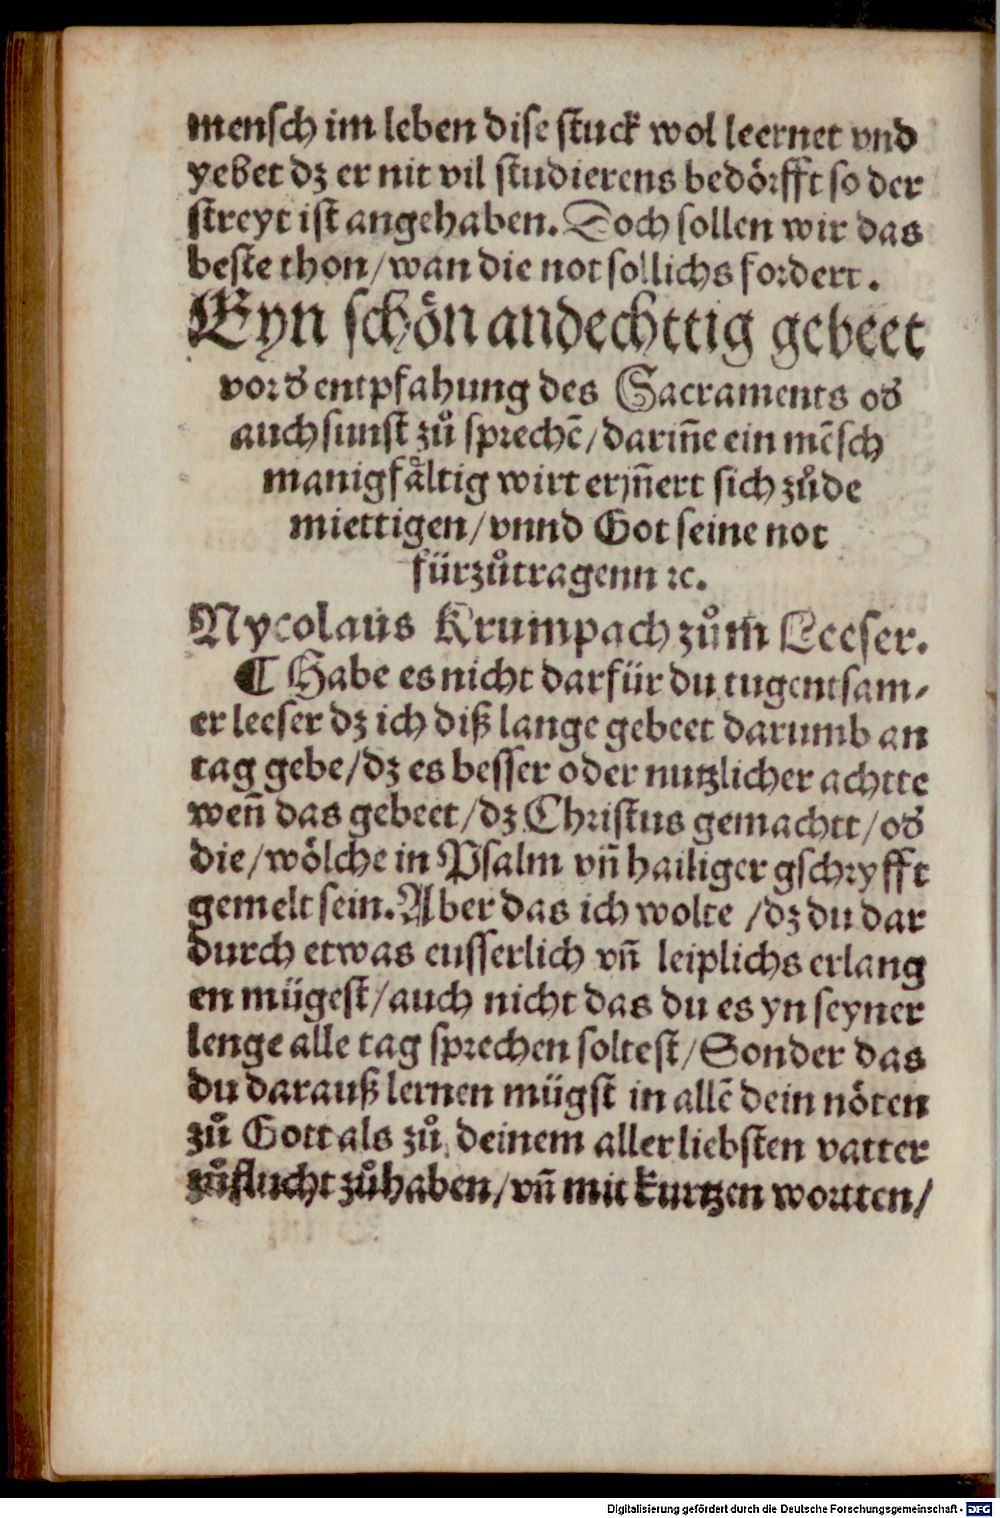 mensch im leben dise stuck wol leernet vnd
yebet dz er nit vil studierens bedörfft so der
streyt ist angehaben. Doch sollen wir das
beste thon/wan die not sollichs fordert.
Eyn schön andechttig gebeet
vor d entpfahung des Sacraments od
auch sunst zů sprechē/dariñe ein mēsch
manigfåltig wirt erjñert sich zůde
miettigen/vnnd Got seine not
fürzůtragenn ⁊c.
Nycolaus Krumpach zům̄ Leeser.
¶ Habe es nicht darfür du tugentsam⸗
er leeser dz ich diß lange gebeet darumb an
tag gebe/dz es besser oder nutzlicher achtte
weñ das gebeet/dz Christus gemachtt/od
die/wölche in Psalm vñ hailiger gschryfft
gemelt sein. Aber das ich wolte /dz du dar
durch etwas eusserlich vñ leiplichs erlang
en mügest/auch nicht das du es yn seyner
lenge alle tag sprechen soltest/Sonder das
du darauß lernen mügst in allē dein nöten
zů Gott als zů deinem aller liebsten vatter
zůflucht zůhaben/vñ mit kurtzen wortten/
Digitalisierung gefördert durch die Deutsche Forschungsgemeinschaft - DFG